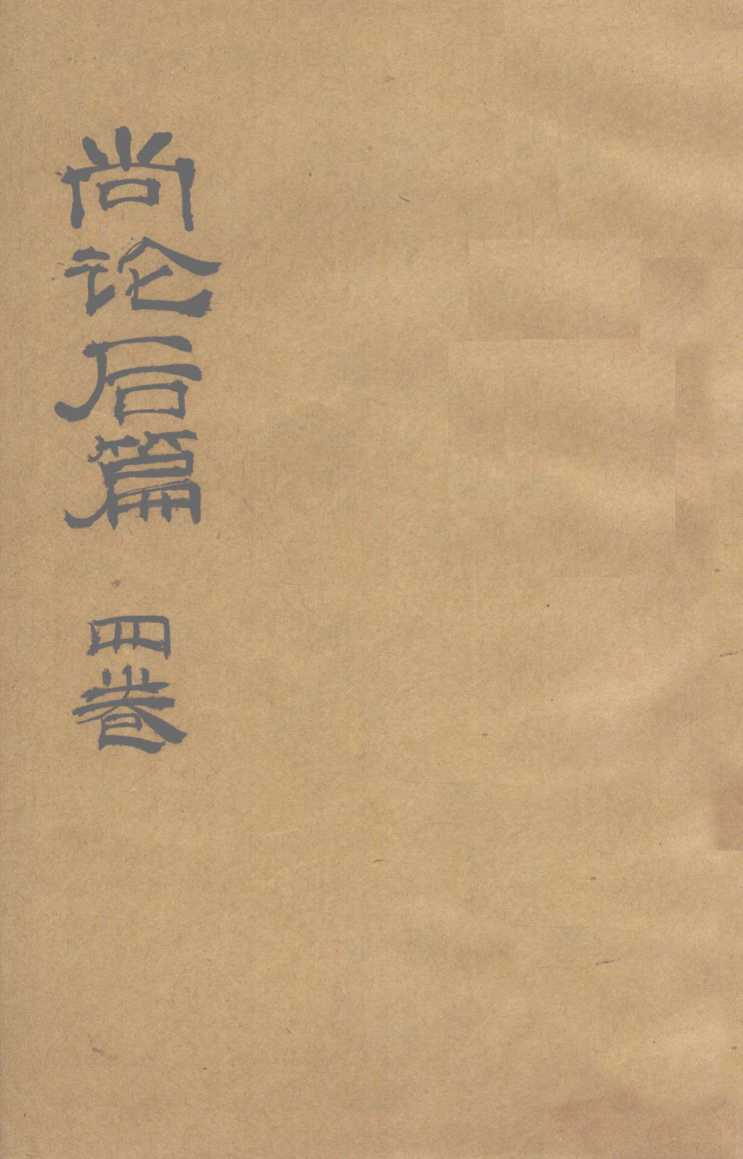 尚论后篇 四卷